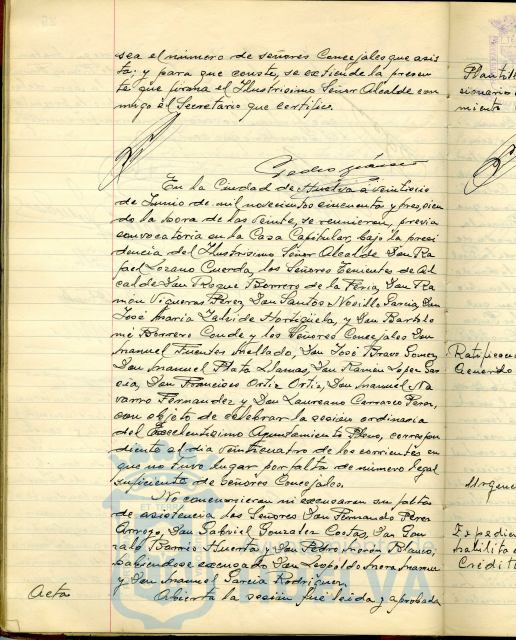 sea el número de señores Concejales que asis
ta; y para que conste, se extiende la presen
te que firma el Ilustrisimo Señor Alcalde con
migo el Secretario que certifico.
En la Ciudad de Huelva a veintiseis
de Junio de mil novecientos cincuenta y tres, sien
do la hora de las veinte, se reunieron, previa
convocatoria en la Casa Capitular, bajo la presi
dencia del Ilustrisimo Señor Alcalde Don Ra
fael Lozano Cuerda, los Señores Tenientes de Al
calde Don Roque Borrero de la Feria, Don Ra
món Vigueras Perez, Don Santos Nosillo Garcia, Don
José Maria Zalvide Hortigüela, y Don Bartolo
mé Borrero Conde y los Señores Concejales Don
Manuel Fuentes Mellado, Don José Bravo Gomez
Don Manuel Plata Llamas, Don Ramón Lopez Gar
cia, Don Francisco Ortiz Ortiz, Don Manuel Na
varro Fernandez y Don Laureano Carrasco Perez,
con objeto de celebrar la sesión ordinaria
del Excelentisimo Ayuntamiento Pleno, correspon
diente al dia veinticuatro de los corrientes en
que no tuvo lugar por falta de número legal
suficiente de Señores Concejales.
No concurrieron ni excusaron su falta
de asistencia los Señores Don Fernando Perez
Arroyo, Don Gabriel Gonzalez Costas, Don Gon
zalo Barrio Huerta y Don Pedro Blanco;
habiendose excusado Don Leopoldo
y Don Manuel Garcia Rodriguez
Acta
Abierta la sesión fué leida y aprobada
Ratificacion
Acuerdo
Urgenc
Expedien
habilita
Crédito
HUELVA